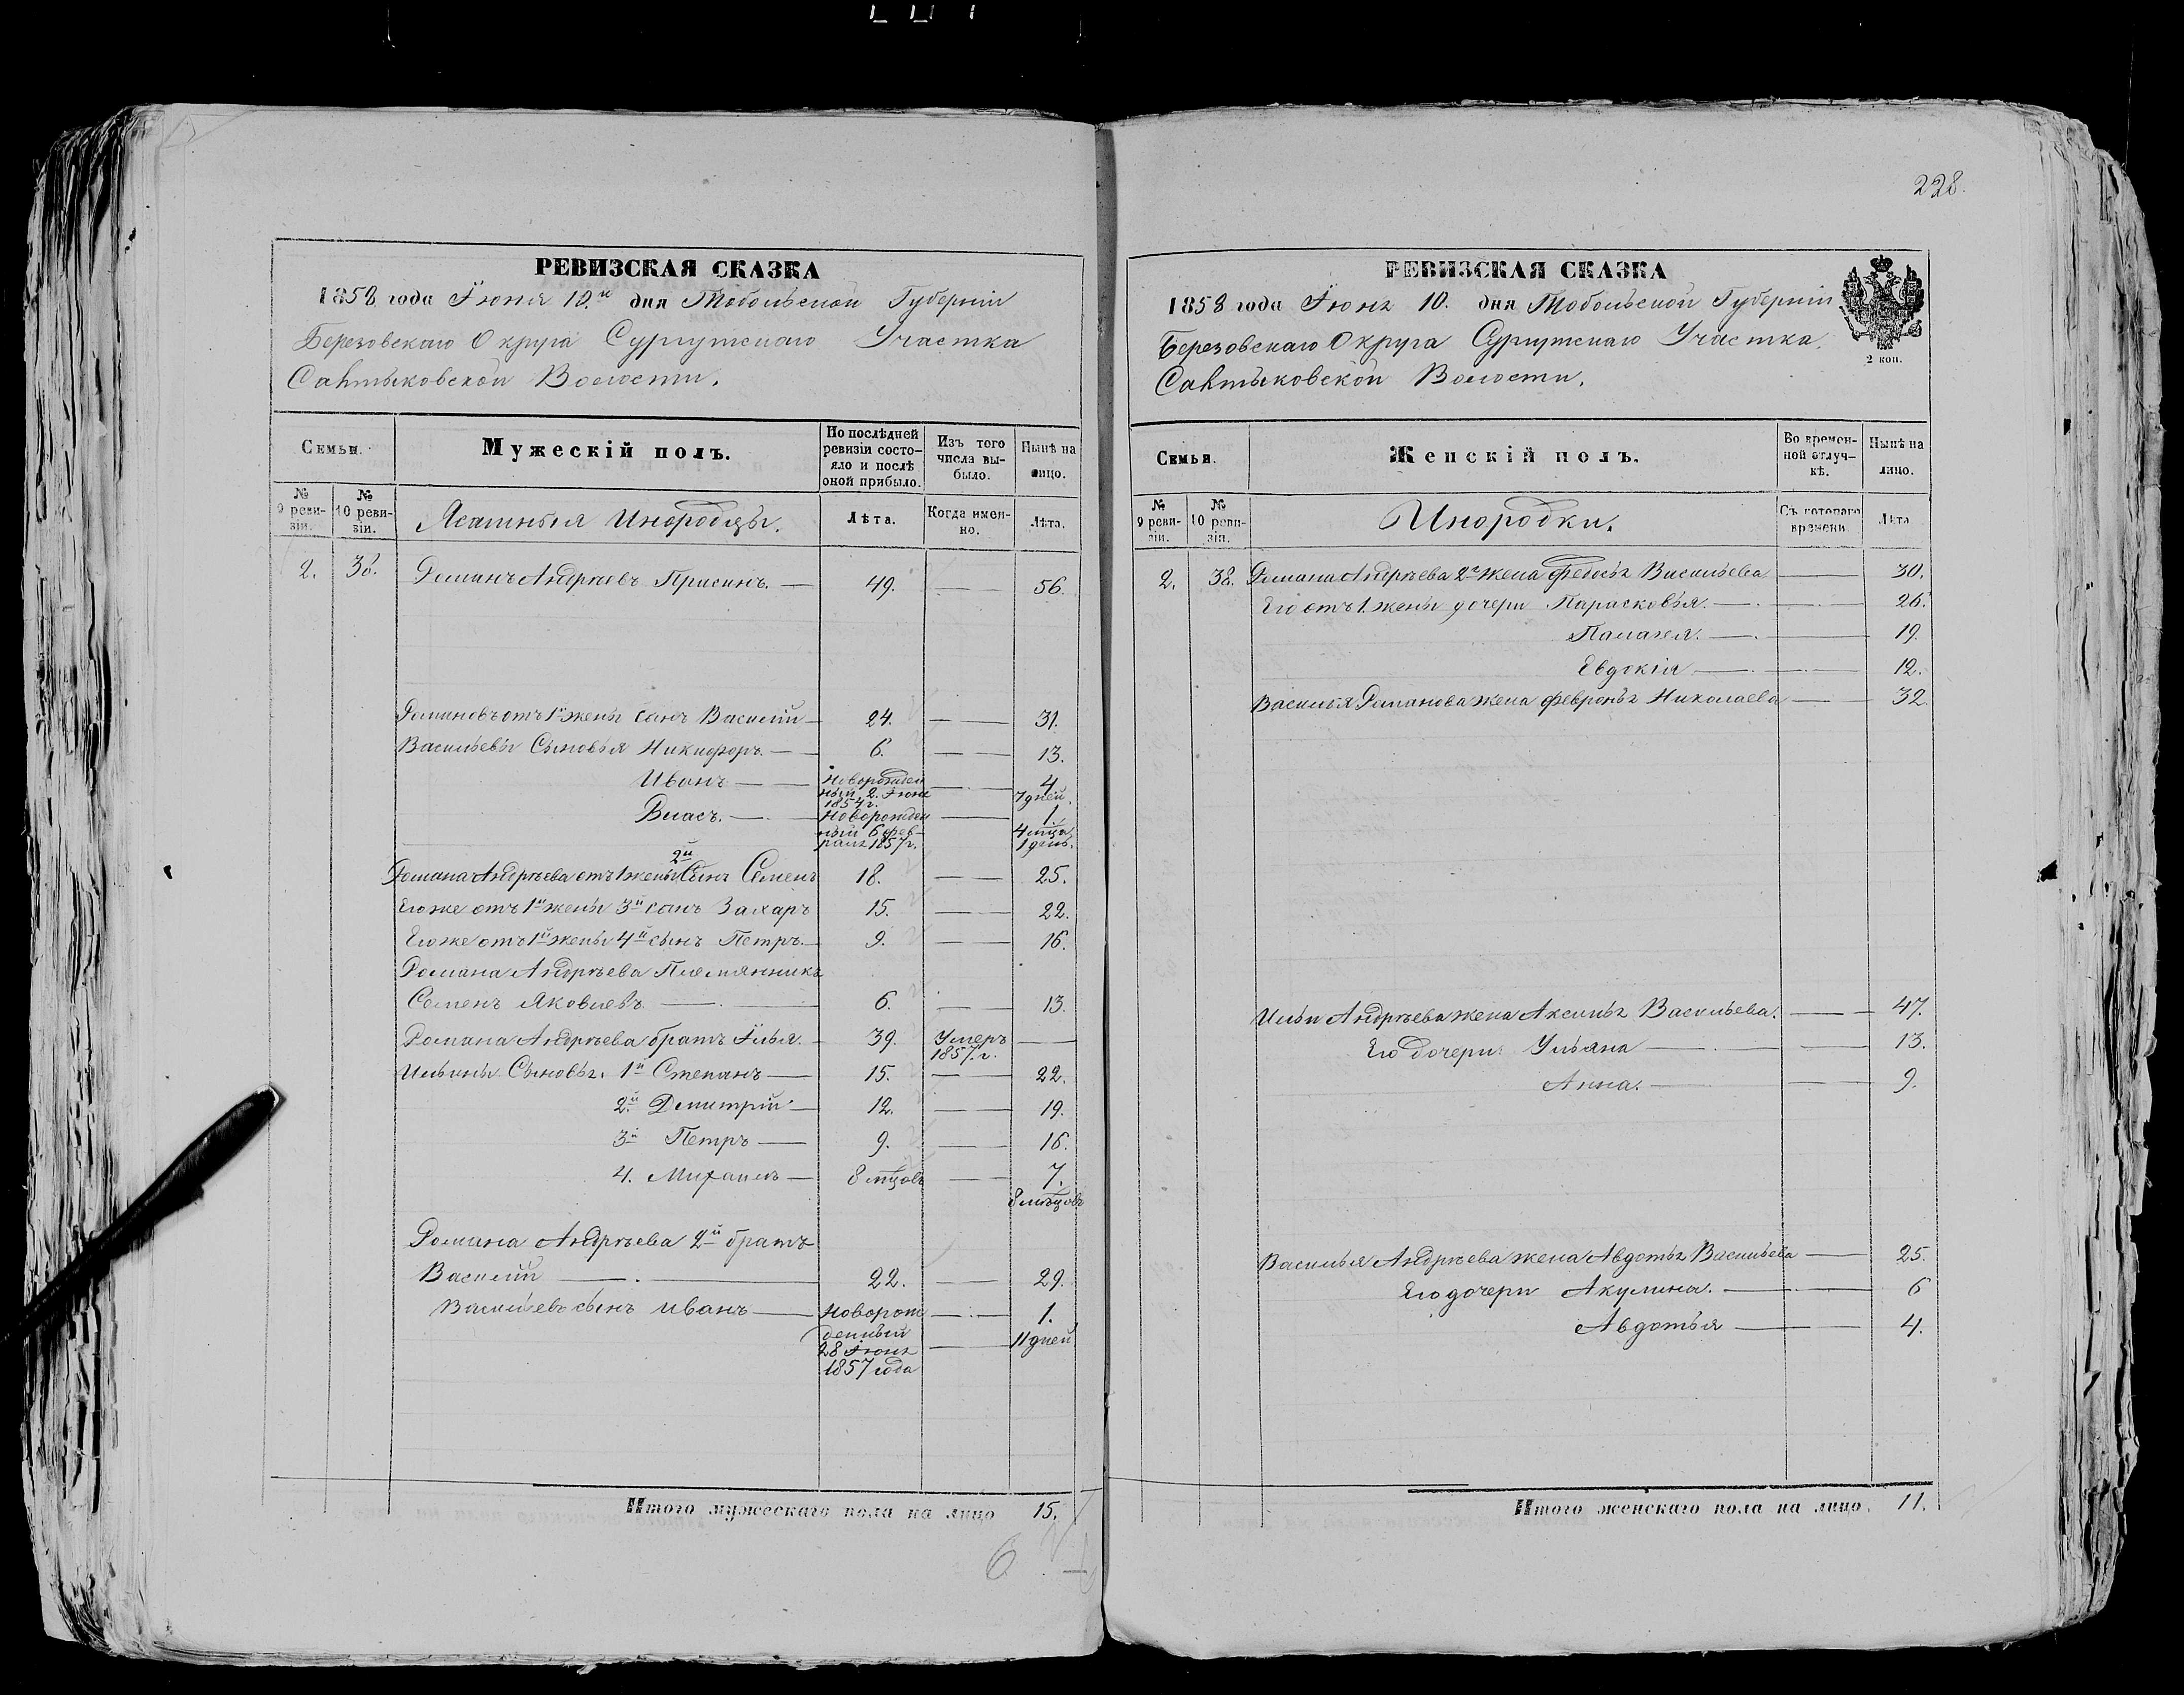 228.
РЕВИЗСКАЯ СКАЗКА
1858 года Іюня 10.го дня Тобольской Губерніи
Березовскаго Округа Сургутскаго Участка
Салтыковской Волости.
Семьи.
Мужескій полъ.
По послѣдней ревизіи состояло и послѣ оной прибыло.
Изъ того числа выбыло.
Нынѣ на лицо.
№ 9 ревизіи.
№ 10 ревизіи.
Ясашныя Инородцы.
Лѣта.
Когда именно.
Лѣта.
2. 38. Романъ Андреевъ — 49. — 56.
Романовъ отъ 1й жены сынъ Василій — 24. — 31.
Васильевы Сыновья Никифоръ. — 6. — 13.
Иванъ — Новорожденный 2. Іюня 1854 г. — 4 7 дней.
Власъ. — Новорожденный 6 февраля 1857 г. — 1. 4 мѣца 1 день.
Романа Андреева отъ 1 жены 2й Сынъ Семенъ 18. — 25.
Его же отъ 1й жены 3й сынъ Захаръ 15. — 22.
Его же отъ 1й жены 4й сынъ Петръ. — 9. — 16.
Романа Андреева Племянникъ
Семенъ Яковлевъ — 6. — 13.
Романа Андреева братъ Илья. — 39. Умеръ 1857. г. —
Ильины Сыновья. 1й Степанъ — 15. — 22.
2й Димитрій — 12. — 19.
3й Петръ — 9. — 16.
4. Михаилъ — 8 мѣцовъ — 7. 8 мѣцовъ
Романа Андреева 2й братъ
Василій — 22. — 29.
Васильевъ сынъ Иванъ — Новорожденный 28 Іюня 1857 года — 1. 11 дней
Итого мужескаго пола на лицо 15.
6
РЕВИЗСКАЯ СКАЗКА
1858 года Іюня 10. дня Тобольской Губерніи
Березовскаго Округа Сургутскаго Участка.
Салтыковской Волости.
2 коп.
Семьи.
Женскій полъ.
Во временной отлучкѣ.
Нынѣ на лицо.
№ 9 ревизіи.
№ 10 ревизіи.
Инородки.
Съ котораго времени.
Лѣта
2. 38. Романа Андреева 2я жена Федосья Васильева — 30.
Его отъ 1. жены дочери Парасковья. — 26.
Палагея. — 19.
Евдокія — 12.
Василья Романова жена Февронья Николаева — 32.
Ильи Андреева жена Аксинья Васильева. — 47.
Его дочери Ульяна — 13.
Анна. — 9.
Василья Андреева жена Авдотья Васильева — 25.
Его дочери Акулина. — 6
Авдотья — 4.
Итого женскаго пола на лицо. 11.